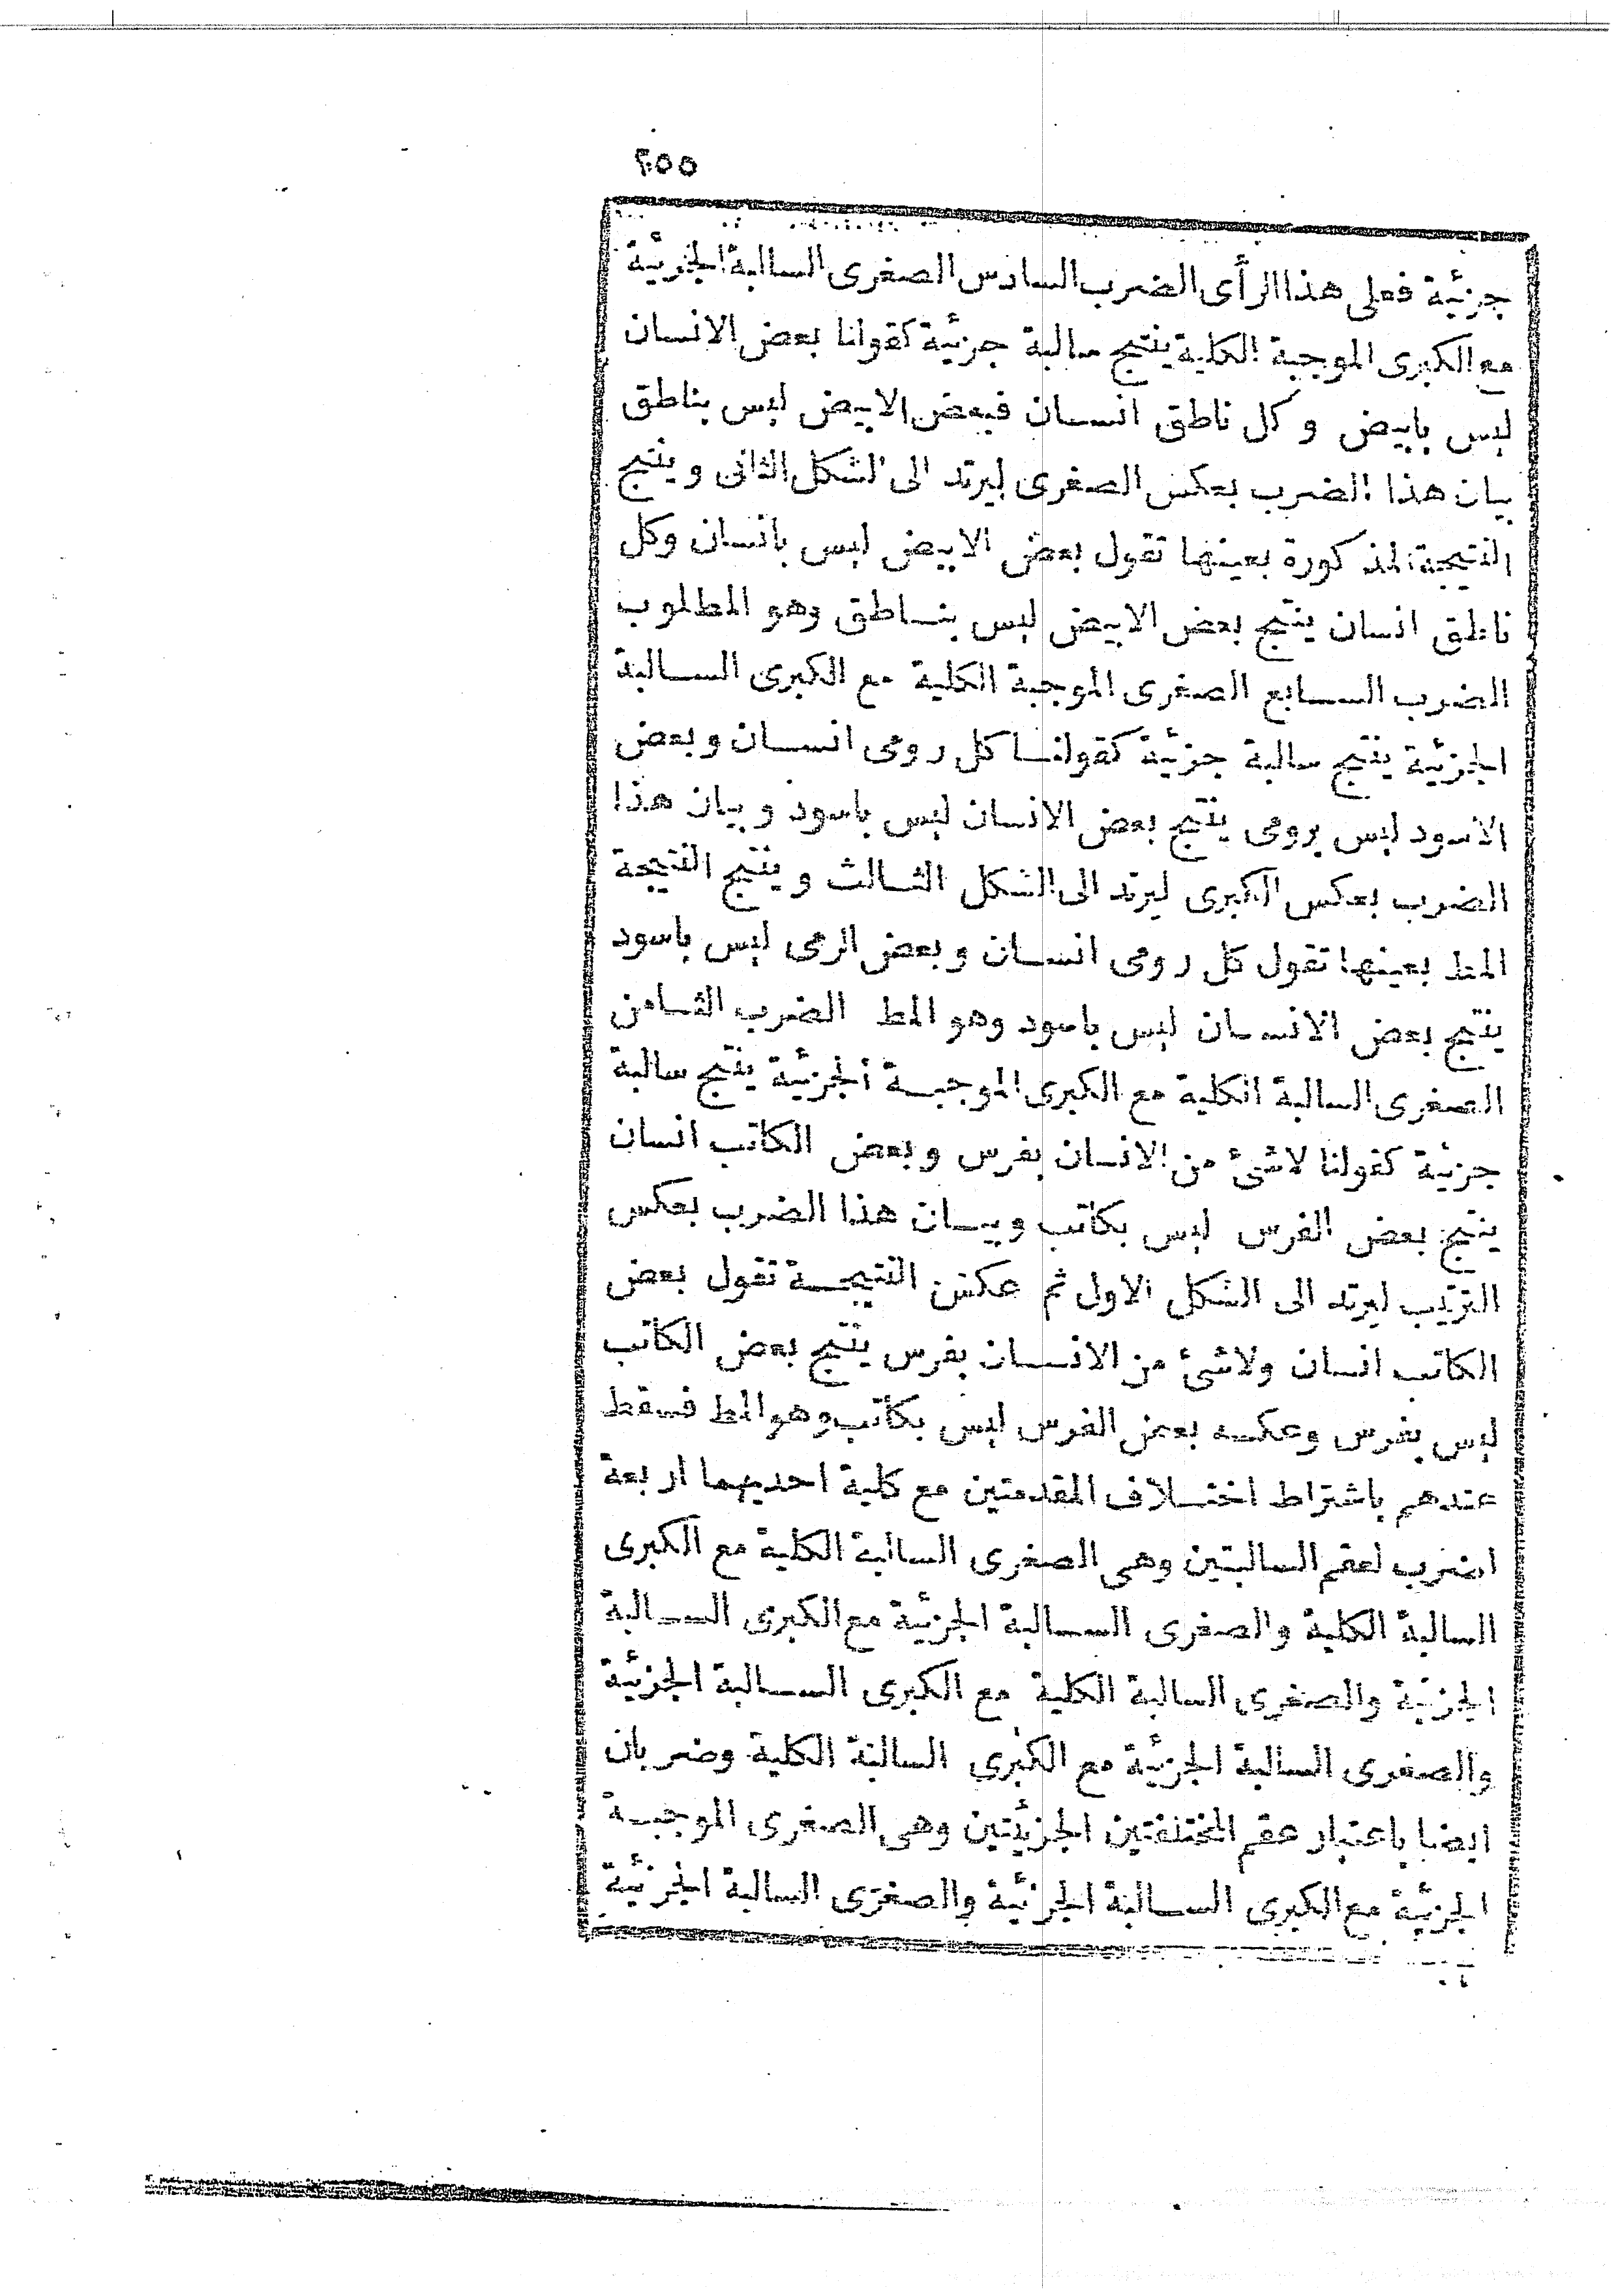 ٢٥٥
جزئية فعلى هذا الرأى الضرب السادس الصغرى السالبة الجزئية
مع الكبرى الموجبة الكلية ينتج سالبة جزئية كقولنا بعض الانسان
ليس بابيض وكل ناطق انسان فبعض الابيض ليس بناطق
بيان هذا الضرب بعكس الصغرى ليرتد الى الشكل الثانى وينتج
النتيجة المذكورة بعينها تقول بعض الابيض ليس بانسان وكل
ناطق انسان ينتج بعض الابيض ليس بناطق وهو المطلوب
الضرب السابع الصغرى الموجبة الكلية مع الكبرى السالبة
الجزئية ينتج سالبة جزئية كقولنا كل رومى انسان وبعض
الاسود ليس برومى ينتج بعض الانسان ليس باسود وبيان هذا
الضرب بعكس الكبرى ليرتد الى الشكل الثالث وينتج النتيجة
المط بعينها تقول كل رومى انسان وبعض الرمى ليس باسود
ينتج بعض الانسان ليس باسود وهو المط الضرب الثامن
الصغرى السالبة الكلية مع الكبرى الموجبة الجزئية ينتج سالبة
جزئية كقولنا لاشئ من الانسان بفرس وبعض الكاتب انسان
ينتج بعض الفرس ليس بكاتب وبيان هذا الضرب بعكس
الترتيب ليرتد الى الشكل الاول ثم عكس النتيجة تقول بعض
الكاتب انسان ولاشئ من الانسان بفرس ينتج بعض الكاتب
ليس بفرس وعكسه بعض الفرس ليس بكاتب وهو المط فسقط
عندهم باشتراط اختلاف المقدمتين مع كلية احديهما اربعة
اضرب لعقم السالبتين وهى الصغرى السالبة الكلية مع الكبرى
السالبة الكلية والصغرى السالبة الجزئية مع الكبرى السالبة
الجزئية والصغرى السالبة الكلية مع الكبرى السالبة الجزئية
والصغرى السالبة الجزئية مع الكبرى السالبة الكلية وضربان
ايضا باعتبار عقم المختلفتين الجزئيتين وهى الصغرى الموجبة
الجزئية مع الكبرى السالبة الجزئية والصغرى السالبة الجزئية